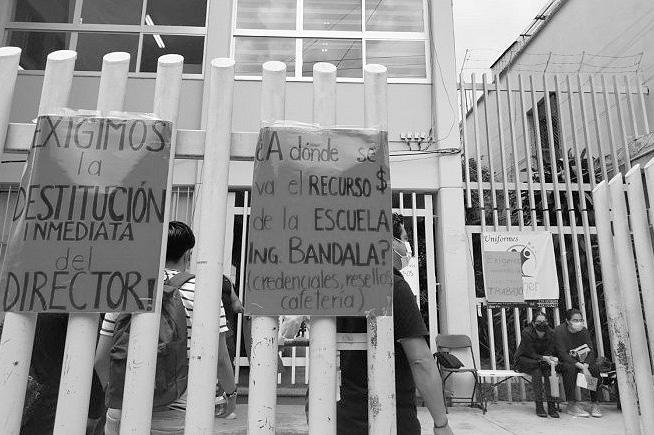 EXIGIMOS
la
DESTITUCIÓN
INMEDIATA
del
DIRECTOR!
¿A dónde se
va el RECURSO $
de la ESCUELA
ING. BANDALA?
(credenciales, resellos
cafetería)
Uniformes
TRABAJO